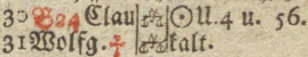 30 B24 Clau ☉U. 4 u. 56.
31 Wolfg. kalt.